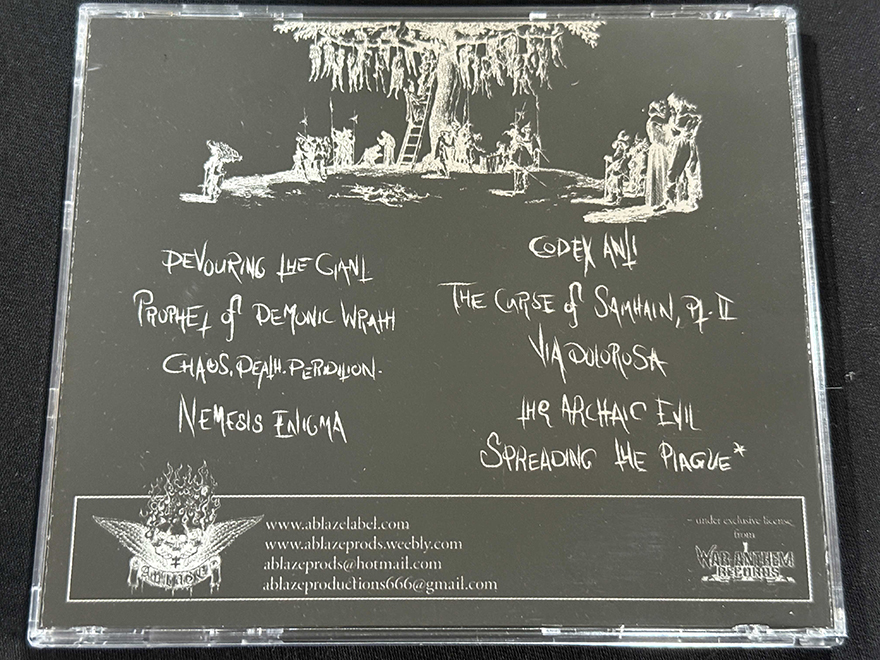 DEVOURING THE GIANT
PROPHET of DEMONIC WRATH
CHAOS. DEATH. PERDITION.
NEMESIS ENIGMA
CODEX ANTI
THE CURSE of SAMHAIN, Pt. II
VIA DOLOROSA
THE ARCHAIC EVIL
SPREADING THE PLAGUE*
www.ablazelabel.com
www.ablazeprods.weebly.com
ablazeprods@hotmail.com
ablazeproductions666@gmail.com
~ under exclusive license
from
WAR ANTHEM
RECORDS